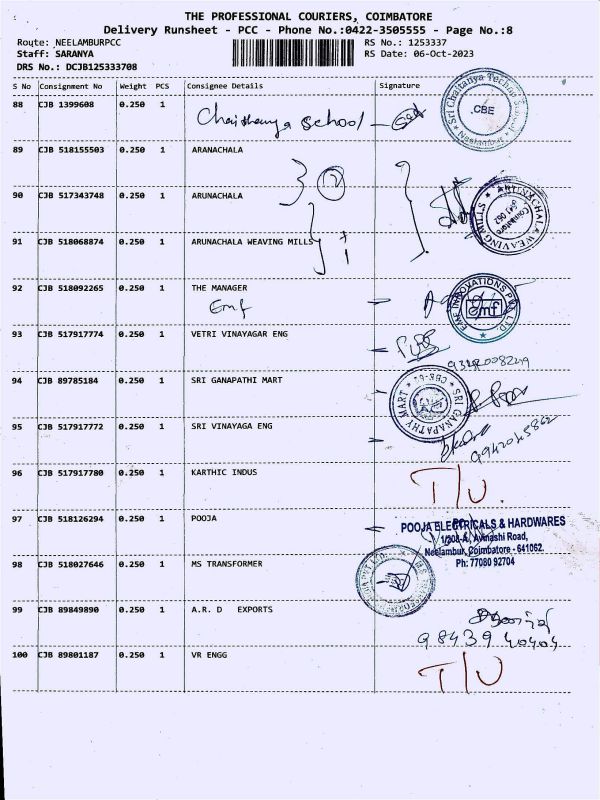 THE PROFESSIONAL COURIERS, COIMBATORE
Delivery Runsheet - PCC - Phone No.:0422-3505555 - Page No.:8
Route: NEELAMBURPCC RS No.: 1253337
Staff: SARANYA RS Date: 06-Oct-2023
DRS No.: DCJB125333708
S No Consignment No Weight PCS Consignee Details Signature
88 CJB 1399608 0.250 1
Chaithanya School
Sri Chaitanya Techno School
CBE
89 CJB 518155503 0.250 1 ARANACHALA
90 CJB 517343748 0.250 1 ARUNACHALA
ARUNACHALA WEAVING MILLS
Coimbatore
641 062
91 CJB 518068874 0.250 1 ARUNACHALA WEAVING MILLS
92 CJB 518092265 0.250 1 THE MANAGER
Emf
EMF INNOVATIONS PVT. LTD.
emf
93 CJB 517917774 0.250 1 VETRI VINAYAGAR ENG
94 CJB 89785184 0.250 1 SRI GANAPATHI MART
SRI GANAPATHY MART
CBE-62
95 CJB 517917772 0.250 1 SRI VINAYAGA ENG
96 CJB 517917780 0.250 1 KARTHIC INDUS T/U
97 CJB 518126294 0.250 1 POOJA
POOJA ELECTRICALS & HARDWARES
1/208-A, Avinashi Road,
Neelambur, Coimbatore - 641062.
Ph: 77080 92704
98 CJB 518027646 0.250 1 MS TRANSFORMER
99 CJB 89849890 0.250 1 A.R. D EXPORTS
98439 40404
100 CJB 89801187 0.250 1 VR ENGG T/U